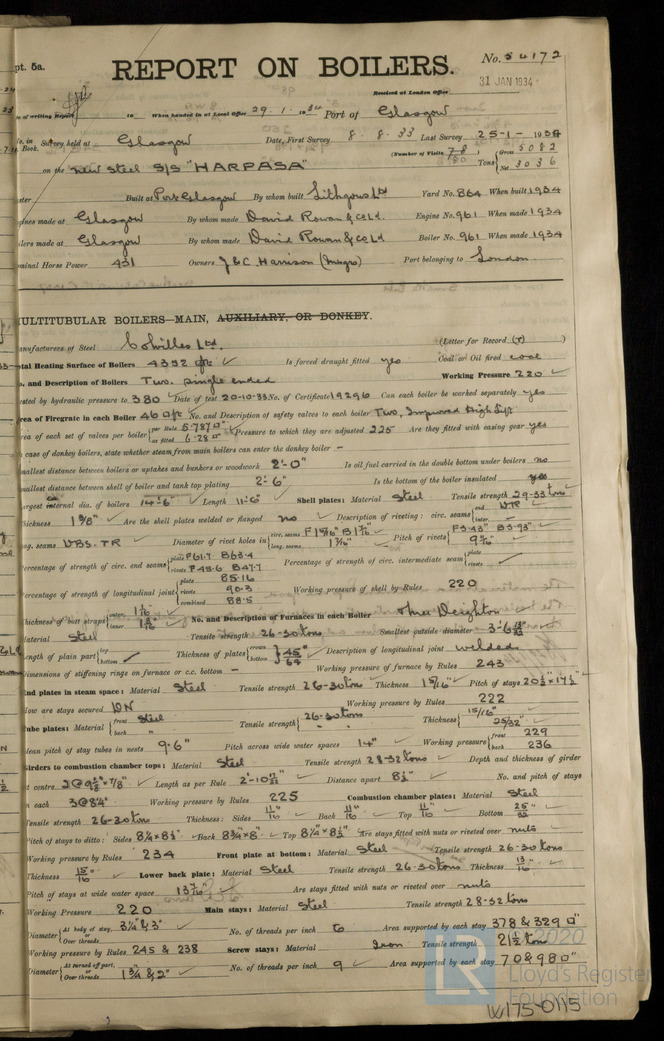 pt. 5a.
No. 54172
REPORT ON BOILERS.
31 JAN 1934
Received at London Office
of writing Report 19 When handed in at Local Office 29.1.1934 Port of Glasgow
No. in Survey held at Glasgow Date, First Survey 8.8.33 Last Survey 25-1-1934
Book.
on the new steel S/S "HARPASA" (Number of Visits 78) Tons Gross 5082 Net 3036
Built at Port Glasgow By whom built Lithgows Ltd Yard No. 864 When built 1934
ines made at Glasgow By whom made David Rowan & Co Ld Engine No. 961 When made 1934
ilers made at Glasgow By whom made David Rowan & Co Ld Boiler No. 961 When made 1934
minal Horse Power 431 Owners J & C. Harrison (Mngrs) Port belonging to London
ULTITUBULAR BOILERS—MAIN, AUXILIARY, OR DONKEY.
anufacturers of Steel Colvilles Ltd. (Letter for Record (S) )
tal Heating Surface of Boilers 4392 sq ft Is forced draught fitted yes Coal or Oil fired coal
o. and Description of Boilers Two. single ended Working Pressure 220
ested by hydraulic pressure to 380 Date of test 20-10-33 No. of Certificate 19296 Can each boiler be worked separately yes
rea of Firegrate in each Boiler 46 sq ft No. and Description of safety valves to each boiler Two, Improved High Lift
rea of each set of valves per boiler per Rule 5.787 □" as fitted 6.28 □" Pressure to which they are adjusted 225 Are they fitted with easing gear yes
case of donkey boilers, state whether steam from main boilers can enter the donkey boiler –
mallest distance between boilers or uptakes and bunkers or woodwork 2'-0" Is oil fuel carried in the double bottom under boilers no
mallest distance between shell of boiler and tank top plating 2'-6" Is the bottom of the boiler insulated yes
argest internal dia. of boilers 14'-6" Length 11'-6" Shell plates: Material Steel Tensile strength 29-33 tons
hickness 1 9/8" Are the shell plates welded or flanged no Description of riveting: circ. seams end DR inter.
ng. seams DBS.TR Diameter of rivet holes in circ. seams F 1 5/16" B 1 7/16" long. seams 1 7/16" Pitch of rivets F 3.43" B 3.93" 9 7/16"
ercentage of strength of circ. end seams plate F 61.7 B 63.4 rivets F 48.6 B 47.7 Percentage of strength of circ. intermediate seam plate rivets
ercentage of strength of longitudinal joint plate 85.16 rivets 90.3 combined 88.5 Working pressure of shell by Rules 220
hickness of butt straps outer 1 1/16" inner 1 3/16" No. and Description of Furnaces in each Boiler Three Deighton
aterial Steel Tensile strength 26-30 tons Smallest outside diameter 3'-6 13/32"
ength of plain part top bottom Thickness of plates crown bottom 45/64" Description of longitudinal joint welded
imensions of stiffening rings on furnace or c.c. bottom – Working pressure of furnace by Rules 243
nd plates in steam space: Material Steel Tensile strength 26-30 tons Thickness 1 5/16" Pitch of stays 20½" × 17½"
ow are stays secured DN Working pressure by Rules 222
ube plates: Material front Steel back " Tensile strength 26-30 tons " Thickness 15/16" 25/32"
ean pitch of stay tubes in nests 9.6" Pitch across wide water spaces 14" Working pressure front 229 back 236
irders to combustion chamber tops: Material Steel Tensile strength 28-32 tons Depth and thickness of girder
t centre Length as per Rule 2'-10 Distance apart 8½" No. and pitch of stays
n each 3 @ 8¼" Working pressure by Rules 225 Combustion chamber plates: Material Steel
ensile strength 26-30 tons Thickness: Sides 11/16" Back 11/16" Top 11/16" Bottom 25/32"
itch of stays to ditto: Sides 8¼" × 8½" Back 8¾" × 8" Top 8¼" × 8½" Are stays fitted with nuts or riveted over nuts
orking pressure by Rules 234 Front plate at bottom: Material Steel Tensile strength 26-30 tons
hickness 15/16" Lower back plate: Material Steel Tensile strength 26-30 tons Thickness 13/16"
itch of stays at wide water space 13 7/16" Are stays fitted with nuts or riveted over nuts
orking Pressure 220 Main stays: Material Steel Tensile strength 28-32 tons
iameter At body of stay, or Over threads 3¼" & 3" No. of threads per inch 6 Area supported by each stay 378 & 329 □"
orking pressure by Rules 245 & 238 Screw stays: Material Iron Tensile strength 21½ tons
iameter At turned off part, or Over threads 1¾" & 2" No. of threads per inch 9 Area supported by each stay 70 & 98 □"
© 2020
LR
Lloyd's Register
Foundation
W175-0115